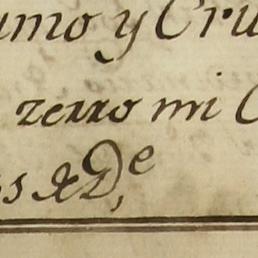 umo y Cru
zerro mi C
os & D.^e